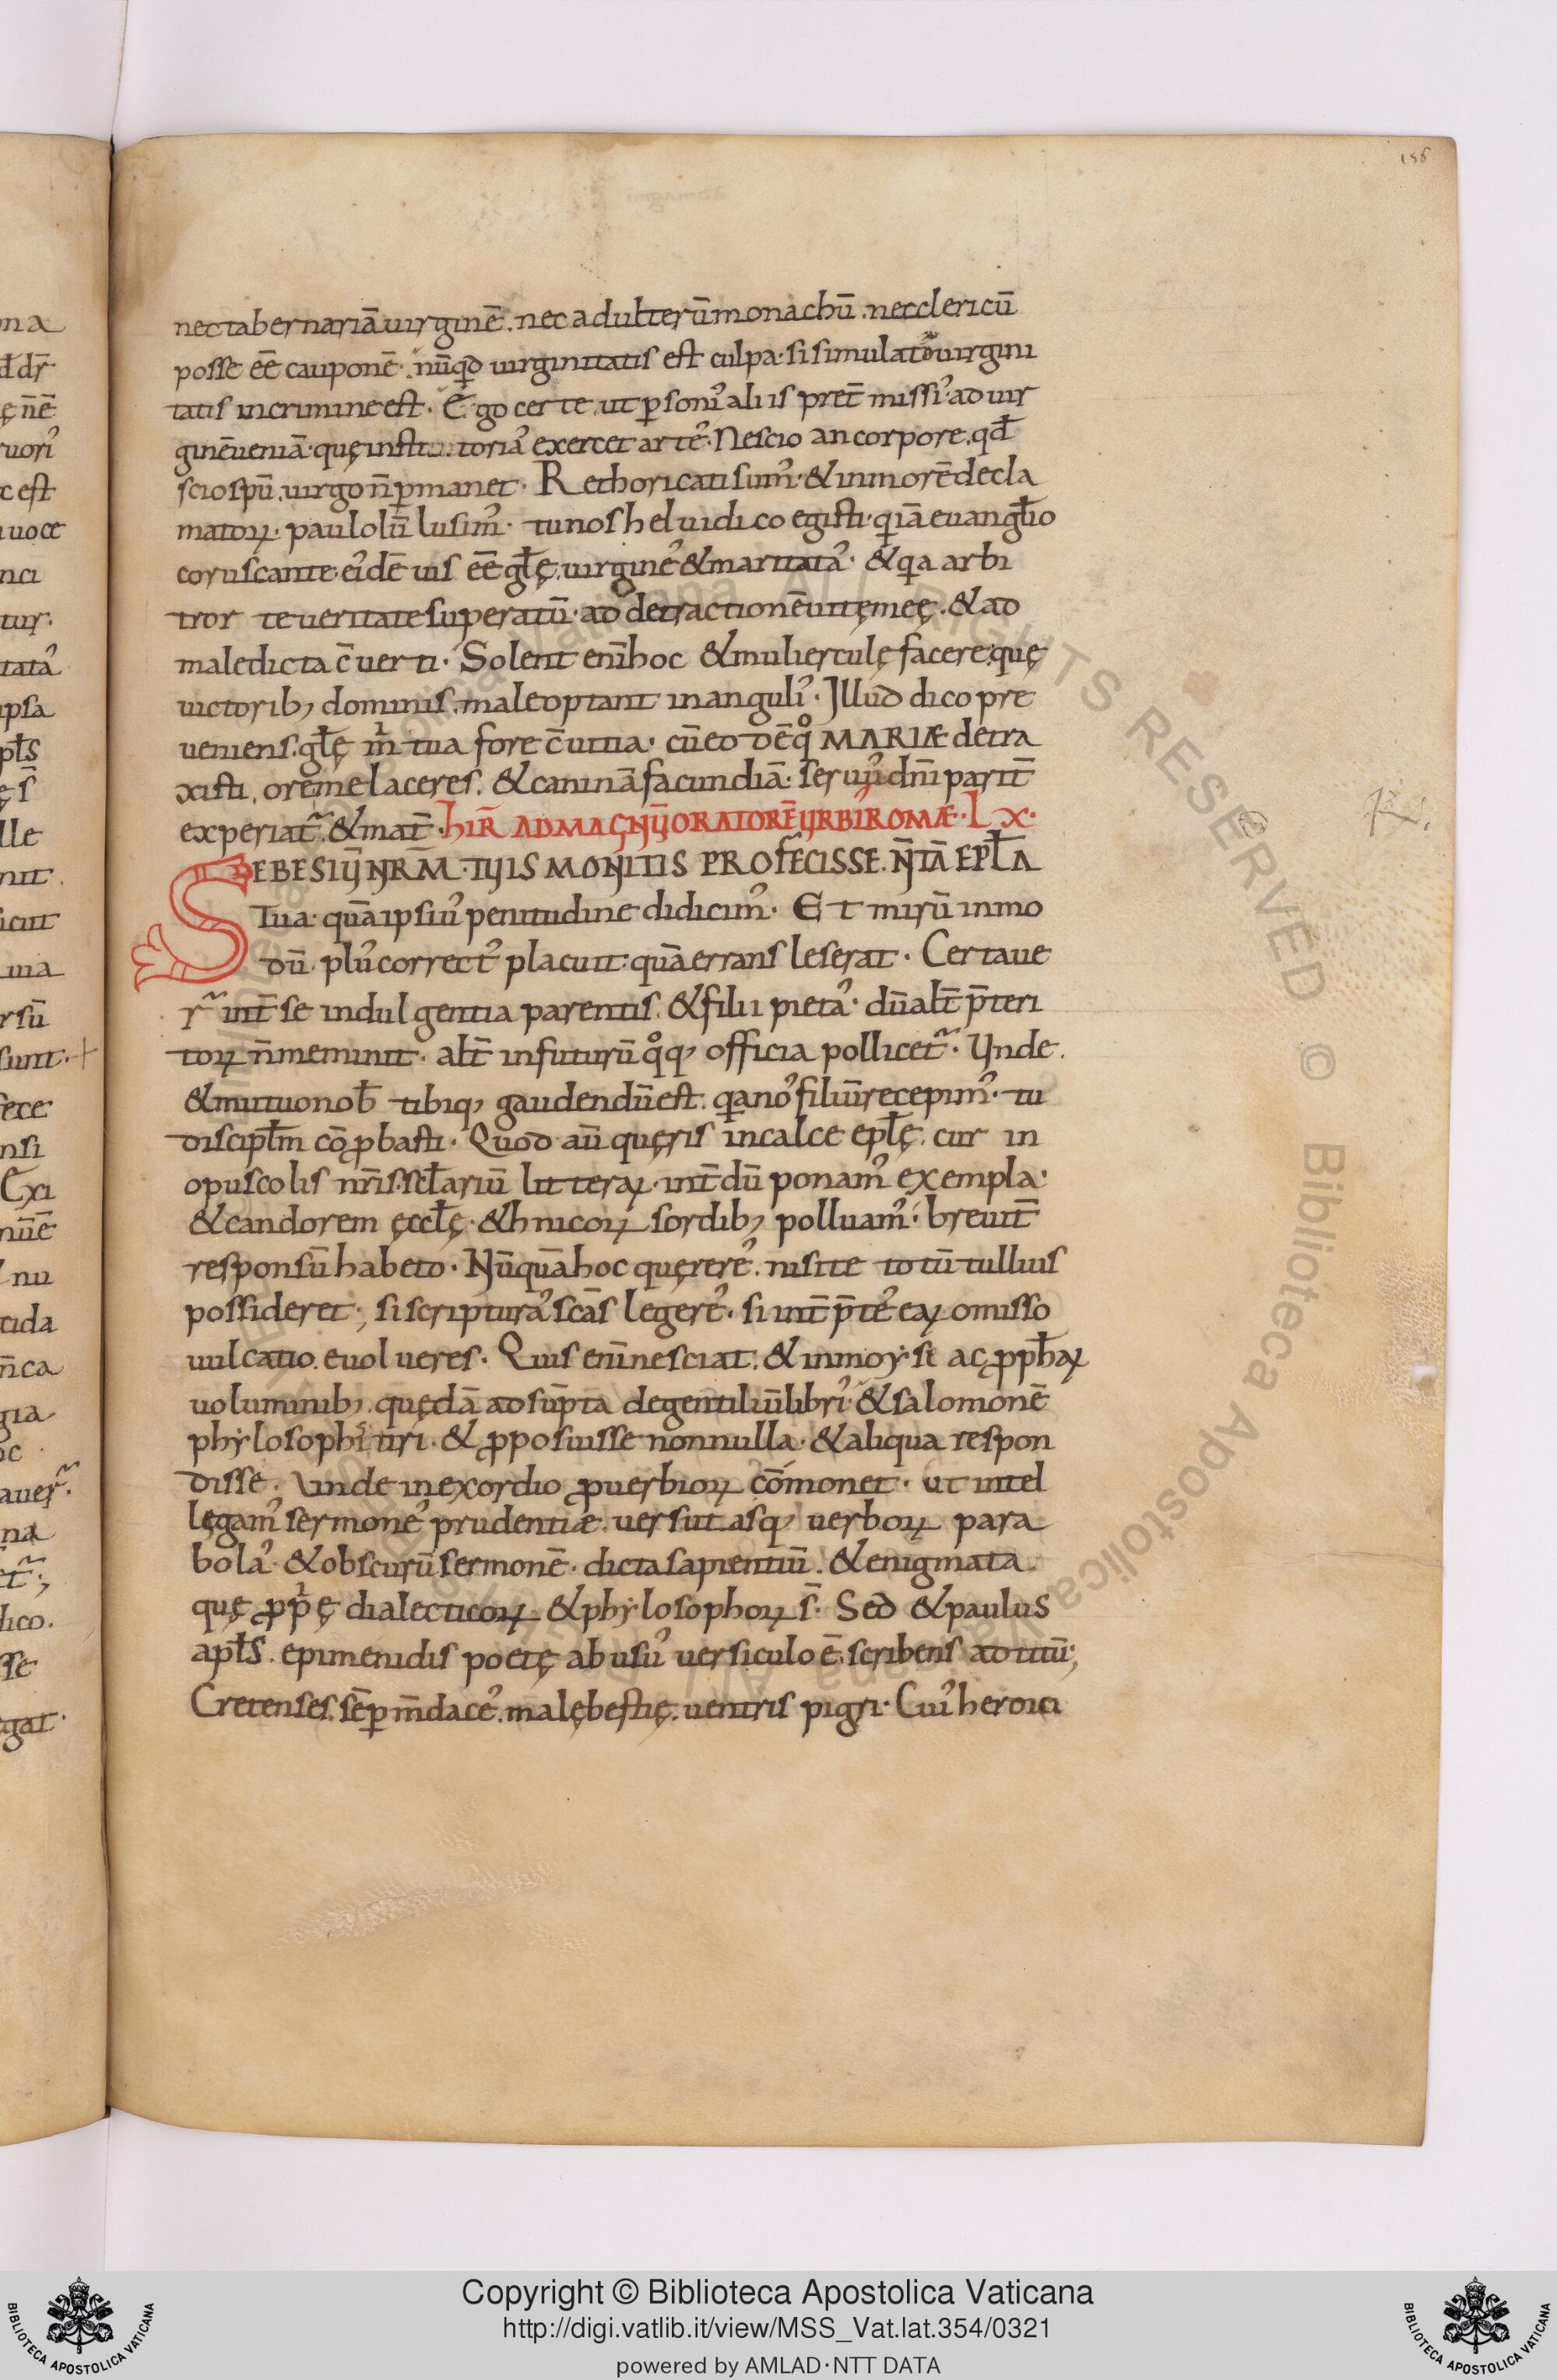 158
nec tabernariā uirginē . nec adulterū monachū . nec clericū
posse eē cauponē . nūqd uirginitatis est culpa · si simulator uirgini
tatis in crimine est . Ego certe ut psonis aliis pret missis ad uir
ginē ueniā · quę insti toriā exercet artē · Nescio an corpore . qd
scio spū . uirgo n̄ pmanet · Rethoricati sum᾽ · & in morē decla
matoꝝ · paulolū lusim᾽ · tu nos heluidi coegisti · q iā euanglio
coruscante ei᾽dē uis eē glę . uirginē & maritatā · & qa arbi
tror te ueritate superatū · ad detractionē uitę meę . & ad
maledicta c̄uerti · Solent enī hoc & mulierculę facere . quę
uictorib; dominis . male optant in angulis · Illud dico pre
ueniens . glę m̄ tua fore c̄uitia · cū eo dē qo MARIÆ detra
xisti . ore me laceres . & caninā facundiā · seruus dn̄i parit̄
experiat̄ . & mat̄ · HIR̄ AD MAGNŪ ORATORĒ URBIS ROMÆ · LX ·
SEBESIŪ NR̄M · TUIS MONITIS PROFECISSE . N̄ TĀ EPLĀ
Tua · quā ipsius penitudine didicim᾽ · Et mirū inmo
dū . plus correct᾽ placuit · quā errans leserat · Certaue
r̄ int̄ se indulgentia parentis . & filii pietas · dū alt̄ p̄teri
toꝝ n̄ meminit · alt̄ in futurū qoq; officia pollicet̄ · Unde
& mutuo nob̄ tibiq; gaudendū est . qa nos filiū recepim᾽ · tu
discipl̄m cō pbasti · Quod aū quęris in calce eplę . cur in
opuscolis nr̄is . scl̄ariū litteraꝝ · int̄dū ponam᾽ exempla ·
& candorem ęcclę · & hnicoꝝ sordib; polluam᾽ · breuit̄
responsū habeto · Nūquā hoc quęrere᾽ . nisi te totū tullius
possideret ; si scripturas scās legere᾽ · si int̄p̄te᾽ eaꝝ omisso
uulcatio . euolueres · Quis enī nesciat . & in moy·si ac pphaꝝ
uoluminib; . quędā adsūpta de gentiliū libris · & salomonē
phy·losophis tiri · & pposuisse nonnulla · & aliqua respon
disse . Unde in exordio puerbioꝝ cōmonet · ut intel
lęgam᾽ sermone᾽ prudentiæ . uersutiasq; uerboꝝ para
bolas · & obscurū sermonē · dicta sapientiū . & enigmata .
quę pp̄ę dialecticoꝝ & phy·losophoꝝ s̄ · Sed & paulus
apl̄s . epimenidis poetę abusus uersiculo ē . scribens ad titū ;
Cretenses . sēp m̄dace᾽ . malę bestię . uentris pigri · Cuius heroici
Copyright © Biblioteca Apostolica Vaticana
http://digi.vatlib.it/view/MSS_Vat.lat.354/0321
powered by AMLAD·NTT DATA
BIBLIOTECA APOSTOLICA VATICANA
BIBLIOTECA APOSTOLICA VATICANA